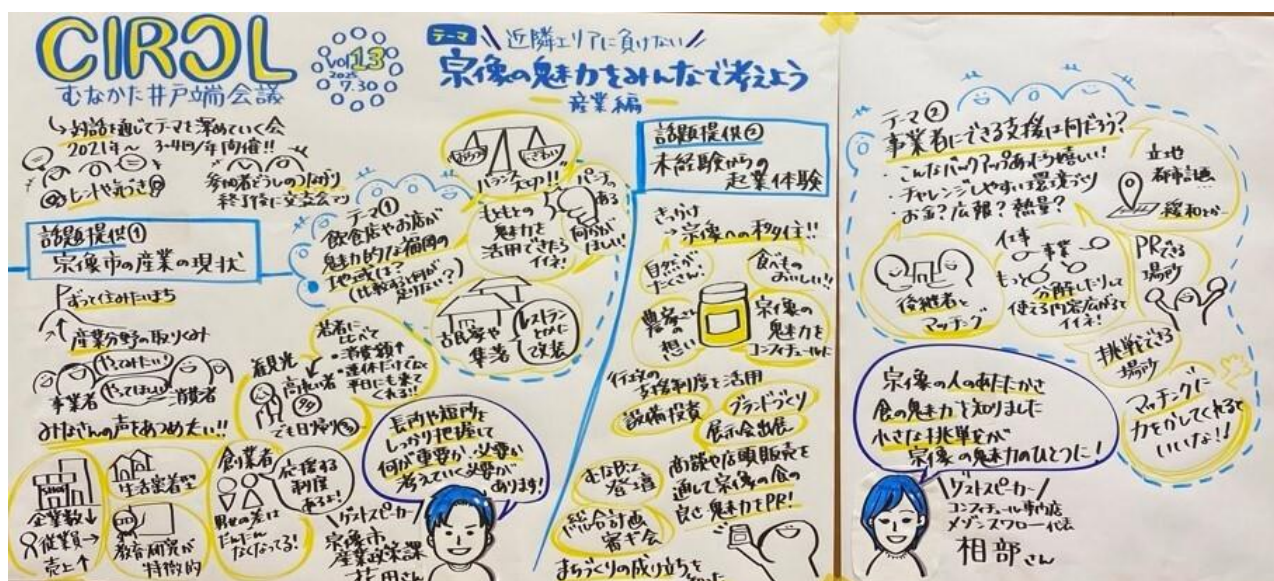 CIRCL
むなかた井戸端会議
vol.13
2025
7.30
テーマ
近隣エリアに負けない
宗像の魅力をみんなで考えよう
産業編
対話を通じてテーマを深めていく会
2021年～ 3-4回/年開催!!
ヒントや気づき
参加者どうしのつながり
終了後に交流会アリ
話題提供①
宗像市の産業の現状
ずっと住みたいまち
産業分野の取りくみ
やってみたい!
やってほしい!
事業者
消費者
みなさんの声をあつめたい!!
企業数↓
従業員→
売上↑
生活密着型
教育研究が
特徴的
創業者
男女の差は
だんだん
なくなってる!
応援する
制度
あるよ!
若者に
比べて
・消費額↑
・連休だけでなく
平日にも来て
くれる!!
観光
高い者
でも日帰り
テーマ①
飲食店やお店が
魅力的な福岡の
地域は?
(比較すると何が
足りない?)
にぎわい
バランス大切!!
もともとの
魅力を
活用できたら
イイネ!
パンチの
ある
何かが
ほしい!
古民家や
集落
レストラン
とかに
改装
長所や短所を
しっかり把握して
何が重要か、必要か
考えていく必要が
あります!
ゲストスピーカー
宗像市
産業政策課
さん
話題提供②
未経験からの
起業体験
きっかけ
→宗像への移住!!
自然が
たくさん!
食べもの
おいしい!!
農家さん
の
想い
宗像の
魅力を
コンフィチュールに
行政の
支援制度を活用
設備投資
ブランドづくり
展示会出展
登壇
総合計画
審ギ会
商談や店頭販売を
通して宗像の食の
良さ・魅力をPR!
まちづくりの成り立ちを
テーマ②
事業者にできる支援は何だろう?
・こんなバックアップあったら嬉しい!
・チャレンジしやすい環境づくり
・お金?広報?熱量?
立地
都市計画…
緩和とか…
後継者と
マッチング
仕事
事業
もっと分解したりして
使える内容広がると
イイネ!
PRできる
場所
挑戦できる
場所
マッチングに
力をかしてくれると
いいな!!
宗像の人のあたたかさ
食の魅力を知りました
小さな挑戦が
宗像の魅力のひとつに!
ゲストスピーカー
コンフィチュール専門店
メゾンスワロー代表
相部さん